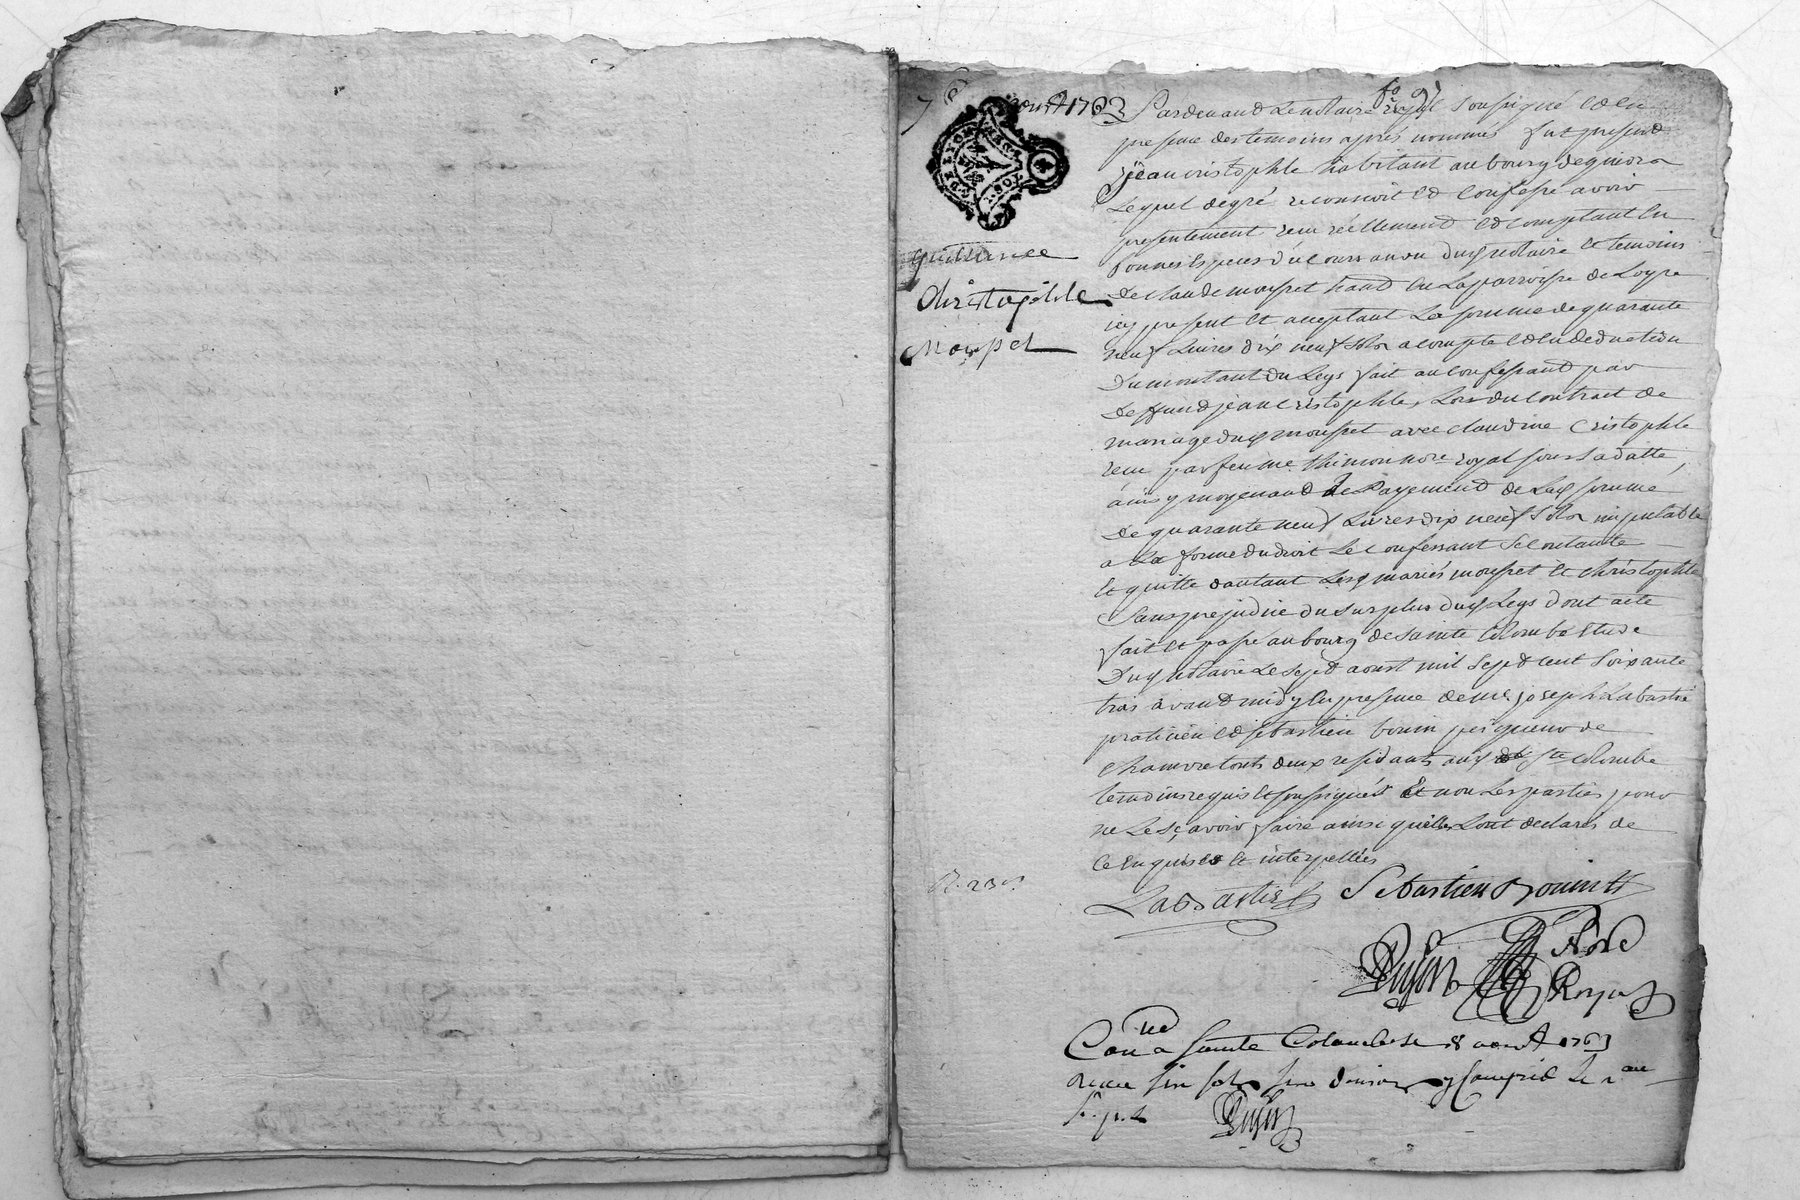 7 aoust 1763
fo 9
quittance
Christophle
Moupet
Pardevand Le notaire royal Soussigné Et En
presence des temoins aprés nommés fut present
jean cristophle habitant au bourg de
Lequel de gré reconnoit Et Confesse avoir
presentement reçu réellement Et comptant En
bonnes Especes d'u Cours au vu dud notaire Et temoins
De claude moupet habt En La parroisse de
icy present Et acceptant La somme de quarante
neuf Livres dix neuf sols a compte Et En deduction
Du montant du Legs fait au Confessant par
Deffund jean Cristophle, Lors du Contract de
mariage dud moupet avec claudine Cristophle
recu par feu me thimon nore royal sous sa datte,
ainsy moyenand Le Payement de Lad somme
De quarante neuf Livres dix neuf sols imputable
a La forme du droit Le Confessant Se Contante
Et quitte dautant Lesd mariés moupet Et christophle
Sans prejudice du surplus dud Legs Dont acte
fait Et passé au bourg de sainte Colombe Etude
Dud notaire Le sept aoust mil sept cent soixante
trois avand midy En presence de me joseph Labastié
praticien Et sebastien bonin peigneur de
Chanvre touts deux residants aud ste Colombe
temoins requis Et soussignés Et non Les parties pour
ne Le sçavoir faire ainsi quelles Lont declarés de
Ce Enquises Et interpellées
Labastie Sebastien Bonin
Nore
Royal
Conlle a Sainte Colombe Le 8 aoust 1763
Reçu six sols